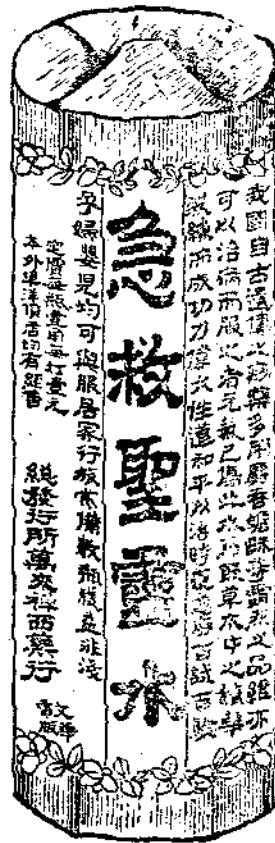 我國自古遺傳之痧藥多用麝香蟾酥等霸烈之品雖亦
可以治病而服之者元氣已傷此水乃採草木中之精華
提鍊而成功力偉大性道和平以治時疫急痧百試百效
急救聖靈水
孕婦嬰兒均可與服居家行旅常備數瓶獲益非淺
定價每瓶壹角每打壹元
本外埠洋貨店均有經售
總發行所萬來祥西藥行